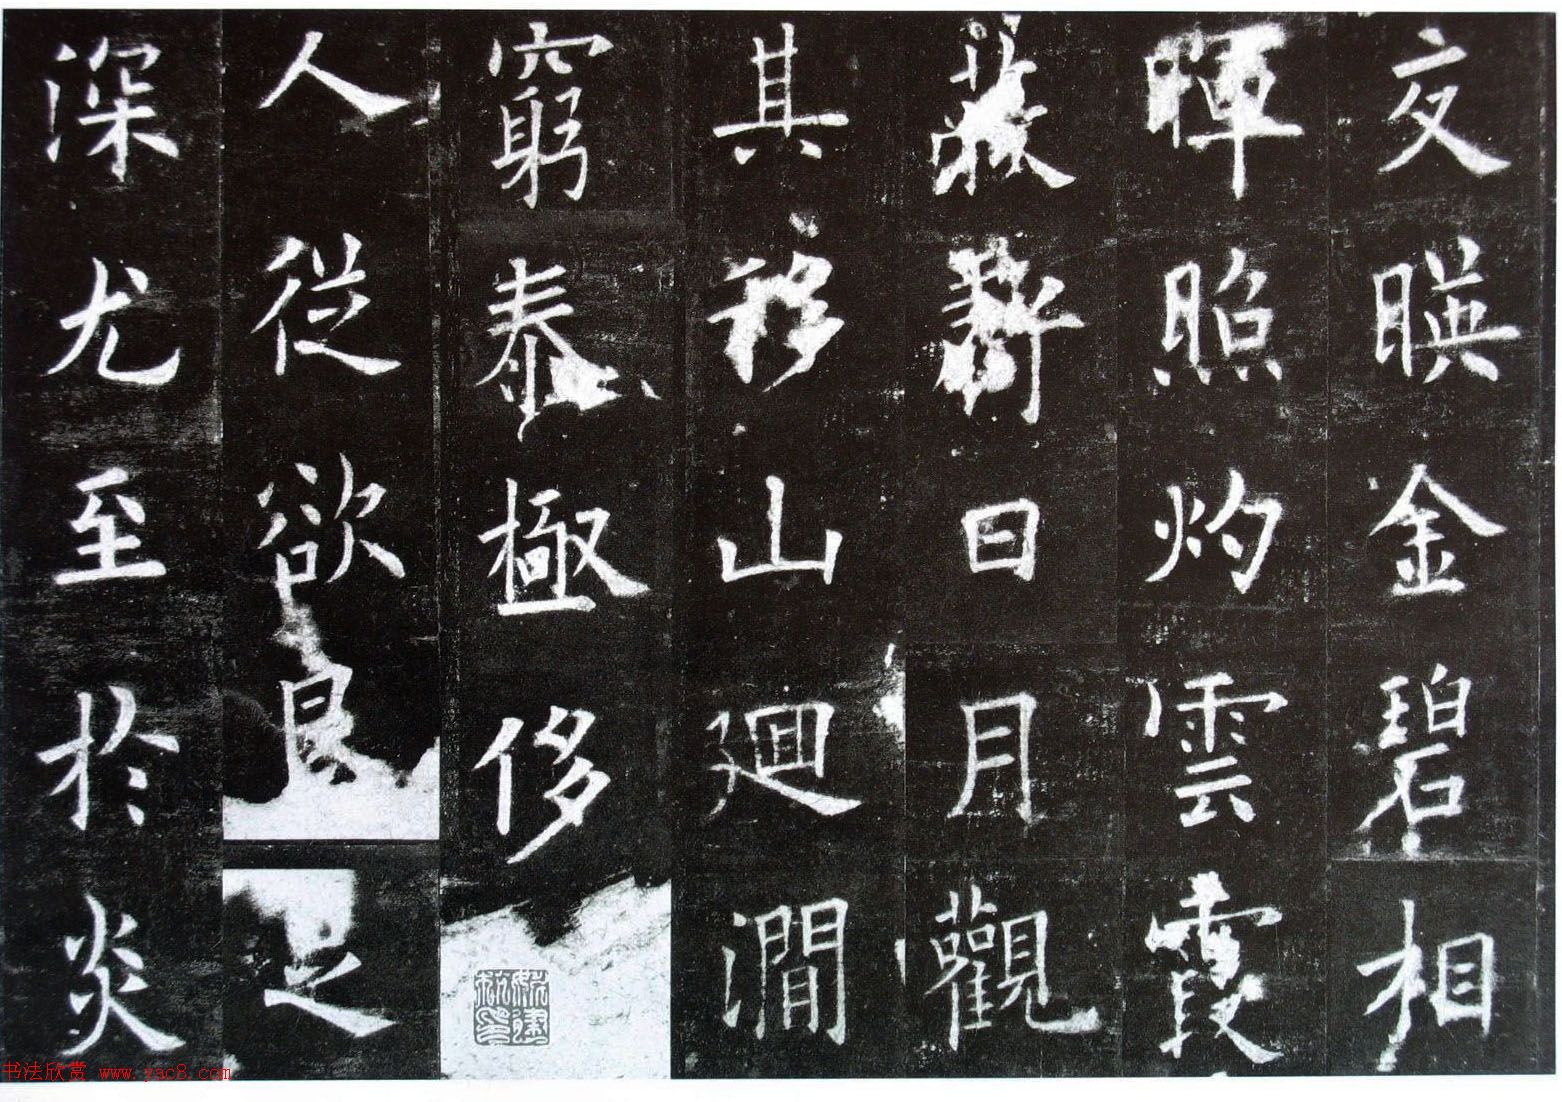 交暎金碧相
暉照灼雲霞
蔽虧日月觀
其移山廻澗
窮泰極侈
人從欲良足
深尤至於炎
书法欣赏 www.yac8.com